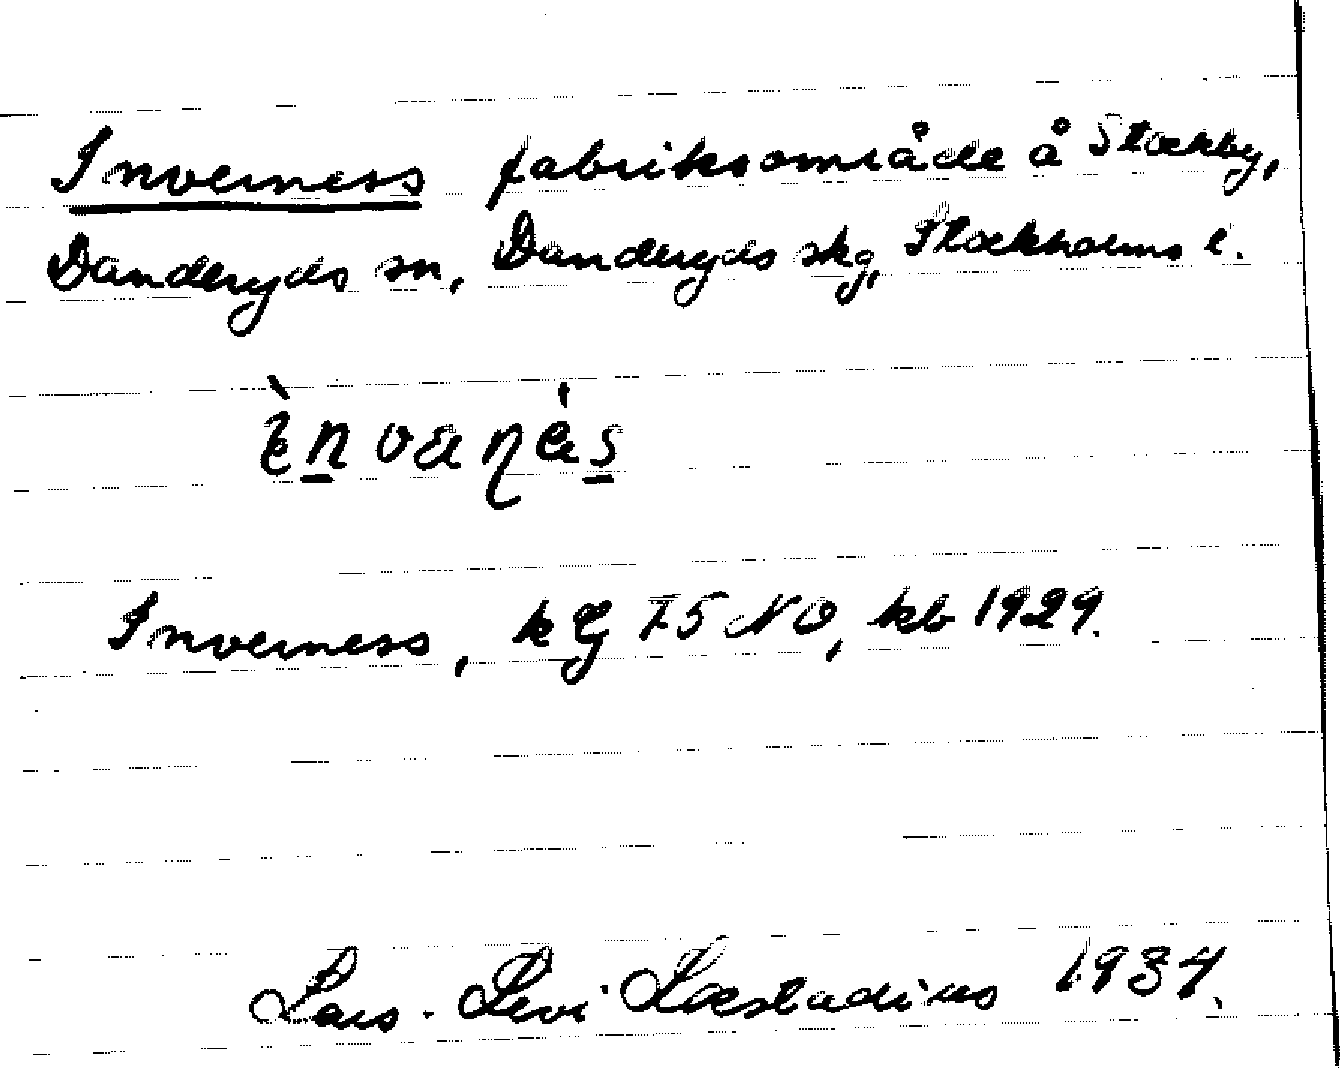 Inverness fabriksområde å Stockby,
Danderyds sn, Danderyds skg, Stockholms l.
Inverness, kG 75 NO, kb 1929.
Lars-Levi Læstadius 1937.